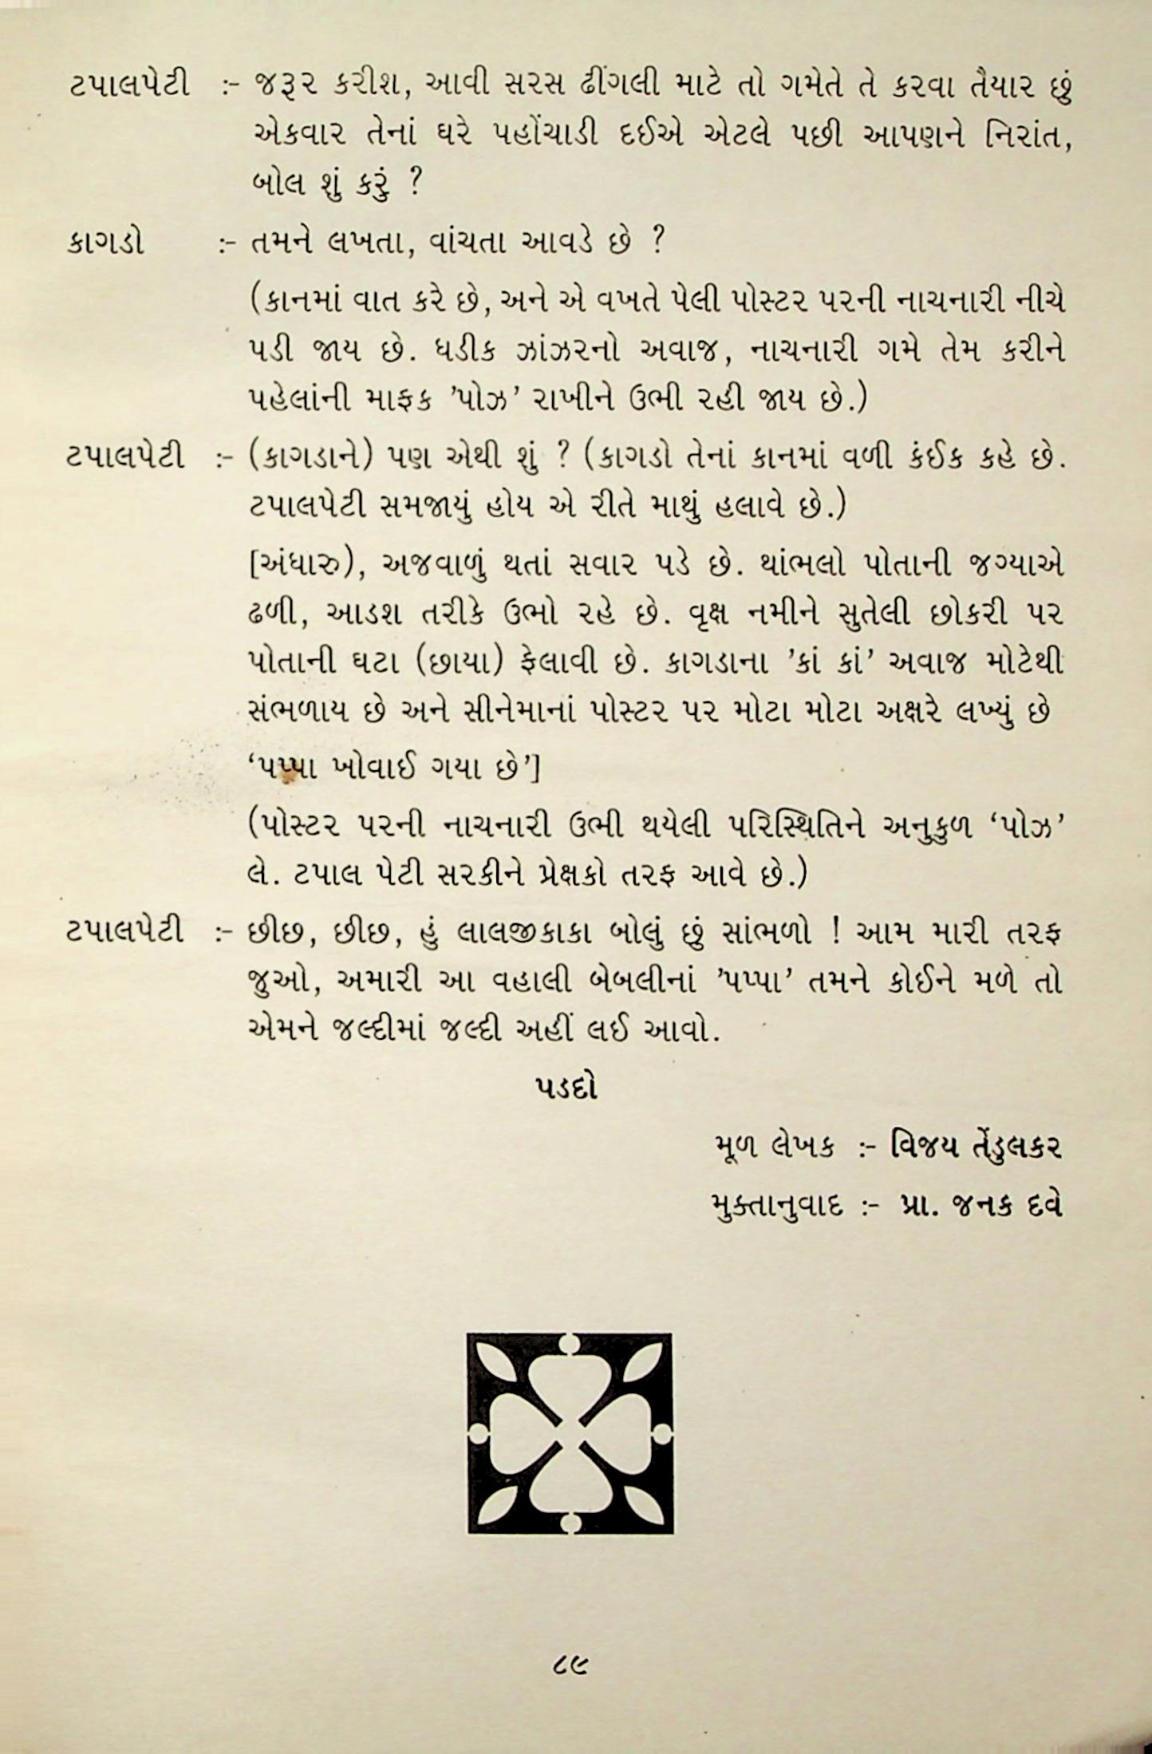 ટપાલપેટી :- જરૂર કરીશ, આવી સરસ ઢીંગલી માટે તો ગમેતે તે કરવા તૈયાર છું
એકવાર તેનાં ઘરે પહોંચાડી દઈએ એટલે પછી આપણને નિરાંત,
બોલ શું કરું ?
કાગડો :- તમને લખતા, વાંચતા આવડે છે ?
(કાનમાં વાત કરે છે, અને એ વખતે પેલી પોસ્ટર પરની નાચનારી નીચે
પડી જાય છે. ધડીક ઝાંઝરનો અવાજ, નાચનારી ગમે તેમ કરીને
પહેલાંની માફક ’પોઝ’ રાખીને ઉભી રહી જાય છે.)
ટપાલપેટી :- (કાગડાને) પણ એથી શું ? (કાગડો તેનાં કાનમાં વળી કંઈક કહે છે.
ટપાલપેટી સમજાયું હોય એ રીતે માથું હલાવે છે.)
[અંધારુ), અજવાળું થતાં સવાર પડે છે. થાંભલો પોતાની જગ્યાએ
ઢળી, આડશ તરીકે ઉભો રહે છે. વૃક્ષ નમીને સુતેલી છોકરી પર
પોતાની ઘટા (છાયા) ફેલાવી છે. કાગડાના ’કાં કાં’ અવાજ મોટેથી
સંભળાય છે અને સીનેમાનાં પોસ્ટર પર મોટા મોટા અક્ષરે લખ્યું છે
‘પપ્પા ખોવાઈ ગયા છે’]
(પોસ્ટર પરની નાચનારી ઉભી થયેલી પરિસ્થિતિને અનુકુળ ‘પોઝ’
લે. ટપાલ પેટી સરકીને પ્રેક્ષકો તરફ આવે છે.)
ટપાલપેટી :- છીછ, છીછ, હું લાલજીકાકા બોલું છું સાંભળો ! આમ મારી તરફ
જુઓ, અમારી આ વહાલી બેબલીનાં ’પપ્પા’ તમને કોઈને મળે તો
એમને જલ્દીમાં જલ્દી અહીં લઈ આવો.
પડદો
મૂળ લેખક :- વિજય તેંડુલકર
મુક્તાનુવાદ :- પ્રા. જનક દવે
૮૯